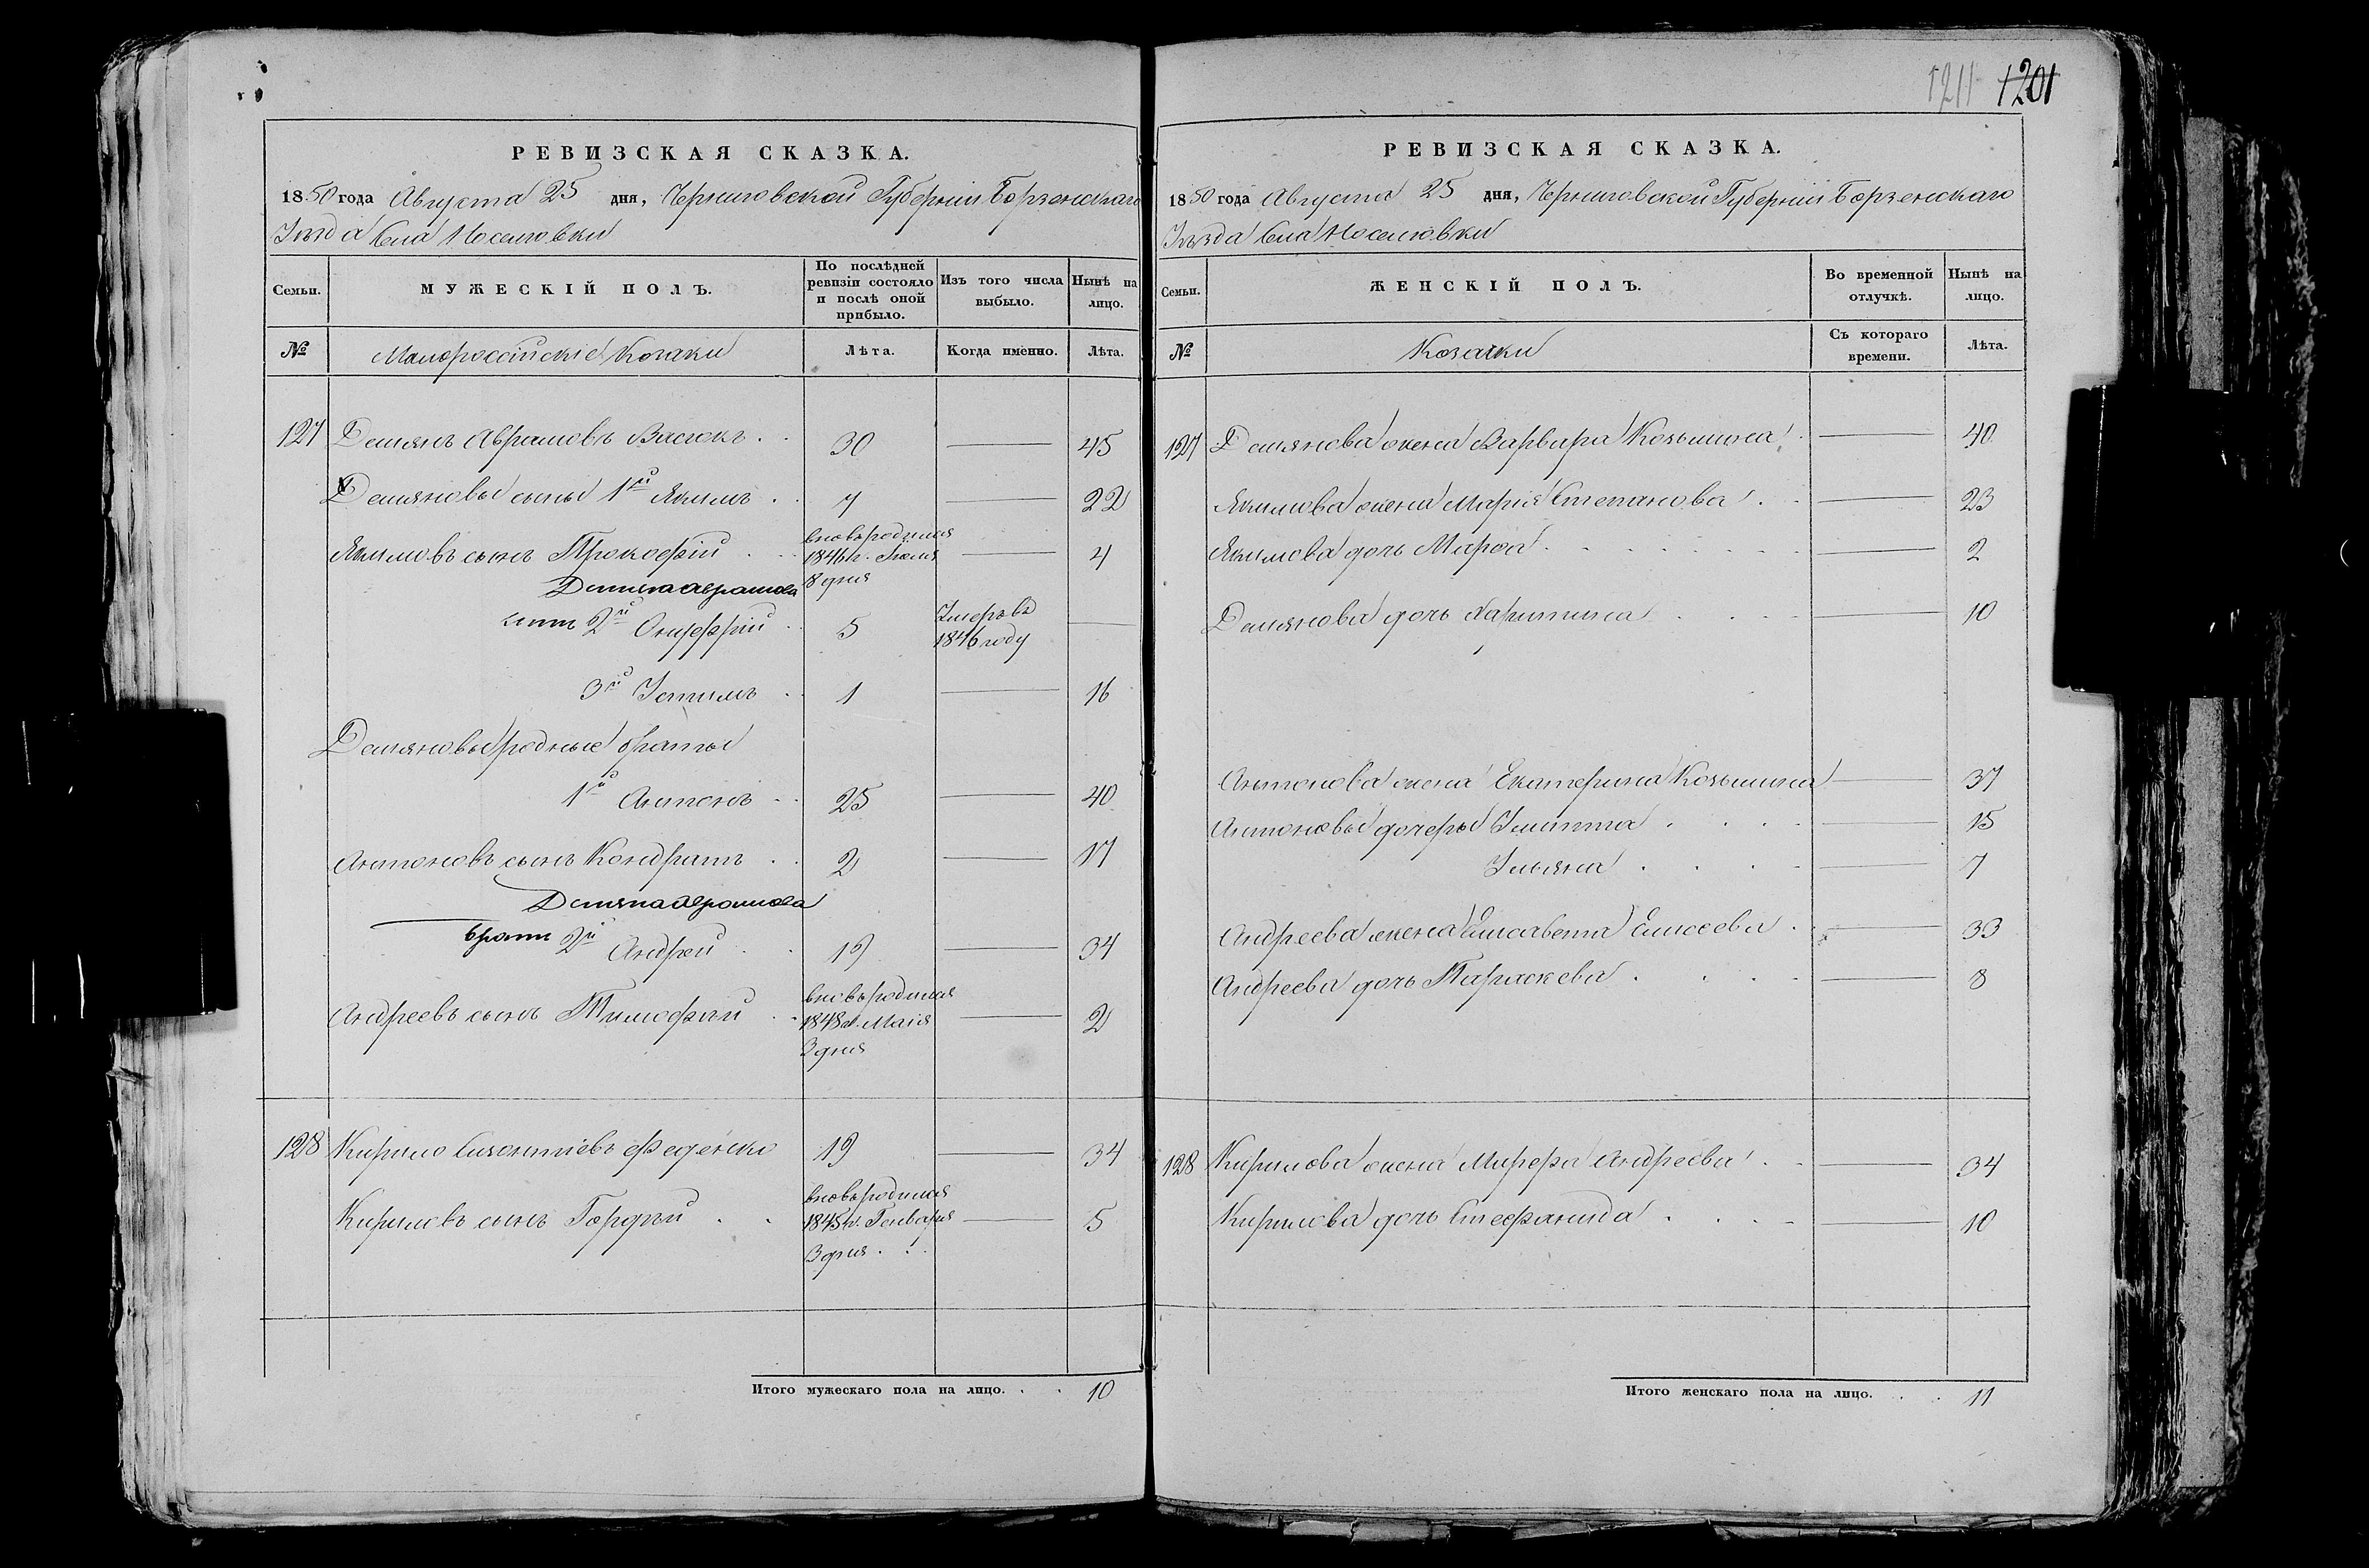 1211 1201
РЕВИЗСКАЯ СКАЗКА.
1850 года Августа 25 дня, Черниговской Губерніи Борзенскаго
Уезда Села Носеловки
Семьи.
МУЖЕСКІЙ ПОЛЪ.
По послѣдней ревизіи состояло и послѣ оной прибыло.
Изъ того числа выбыло.
Нынѣ на лицо.
№
Малороссійскіе Козаки
Лѣта.
Когда именно.
Лѣта.
127 Демянъ Аврамовъ Васюкъ . . 30 — 45
Демяновы сыны 1й Якимъ . . 7 — 22
Якимовъ сынъ Прокофій . . вновь родился 1846 г. Іюля 8 дня — 4
Демяна Аврамова
сынъ 2й Онуфрій . 5 Умеръ въ 1846 году —
3й Устимъ . 1 — 16
Демяновы родные братья
1й Антонъ . . 25 — 40
Антоновъ сынъ Кондратъ . . 2 — 17
Демяна Аврамова
братъ 2й Андрей . . 19 — 34
Андреевъ сынъ Тимофей . . вновь родился 1848 г. Маія 3 дня — 2
128 Кирило Леонтіевъ Феденко 19 — 34
Кириловъ сынъ Гордѣй . . вновь родился 1845 г. Генваря 3 дня . . . — 5
Итого мужескаго пола на лицо. . . 10
РЕВИЗСКАЯ СКАЗКА.
1850 года Августа 25 дня, Черниговской Губерніи Борзенскаго
Уѣзда Села Носеловки
Семьи.
ЖЕНСКІЙ ПОЛЪ.
Во временной отлучкѣ.
Нынѣ на лицо.
№
Козачки
Съ котораго времени.
Лѣта.
127 Демянова жена Варвара Козьмина . — 40
Якимова жена Марія Степанова . . — 23
Якимова дочь Марфа . . . . — 2
Демянова дочь Харитина . . . — 10
Антонова жена Екатерина Козьмина — 37
Антоновы дочеры Улита . . . — 15
Ульяна . . . — 7
Андреева жена Елисавета Елисеева . — 33
Андреева дочь Параскева . . . — 8
128 Кирилова жена Андреева . . — 34
Кирилова дочь Стефанида . . . — 10
Итого женскаго пола на лицо. . . 11